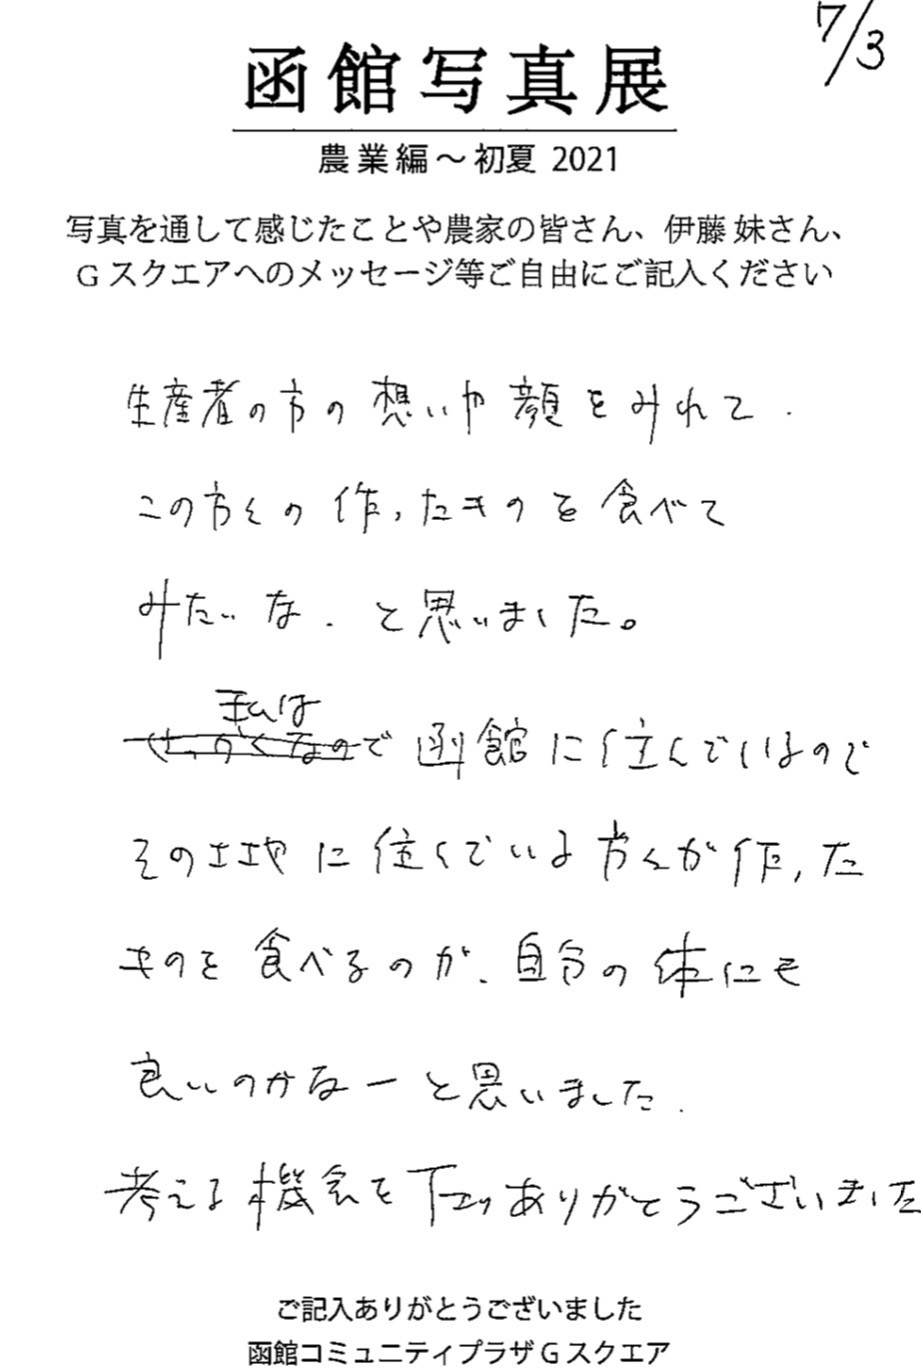 7/3
函館写真展
農業編～初夏 2021
写真を通して感じたことや農家の皆さん、伊藤 妹さん、
G スクエアへのメッセージ等ご自由にご記入ください
生産者の方の想いや顔をみれて、
この方々の作ったものを食べて
みたいな、と思いました。
私は
で函館に住んでいるので
その土地に住んでいる方々が作った
ものを食べるのが、自分の体にも
良いのかなーと思いました。
考える機会を下さりありがとうございました
ご記入ありがとうございました
函館コミュニティプラザ G スクエア